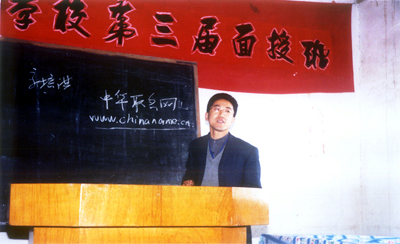 学校第三届面授班
高培淇
中华取名网
www.chinaname.cn